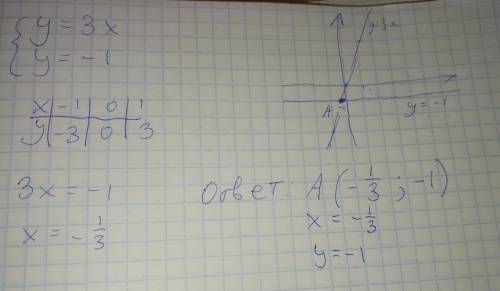 { y = 3x
y = -1
x | -1 | 0 | 1
y | -3 | 0 | 3
3x = -1
x = -1/3
y=3x
A -1
y = -1
Ответ: A (-1/3 ; -1)
x = -1/3
y = -1